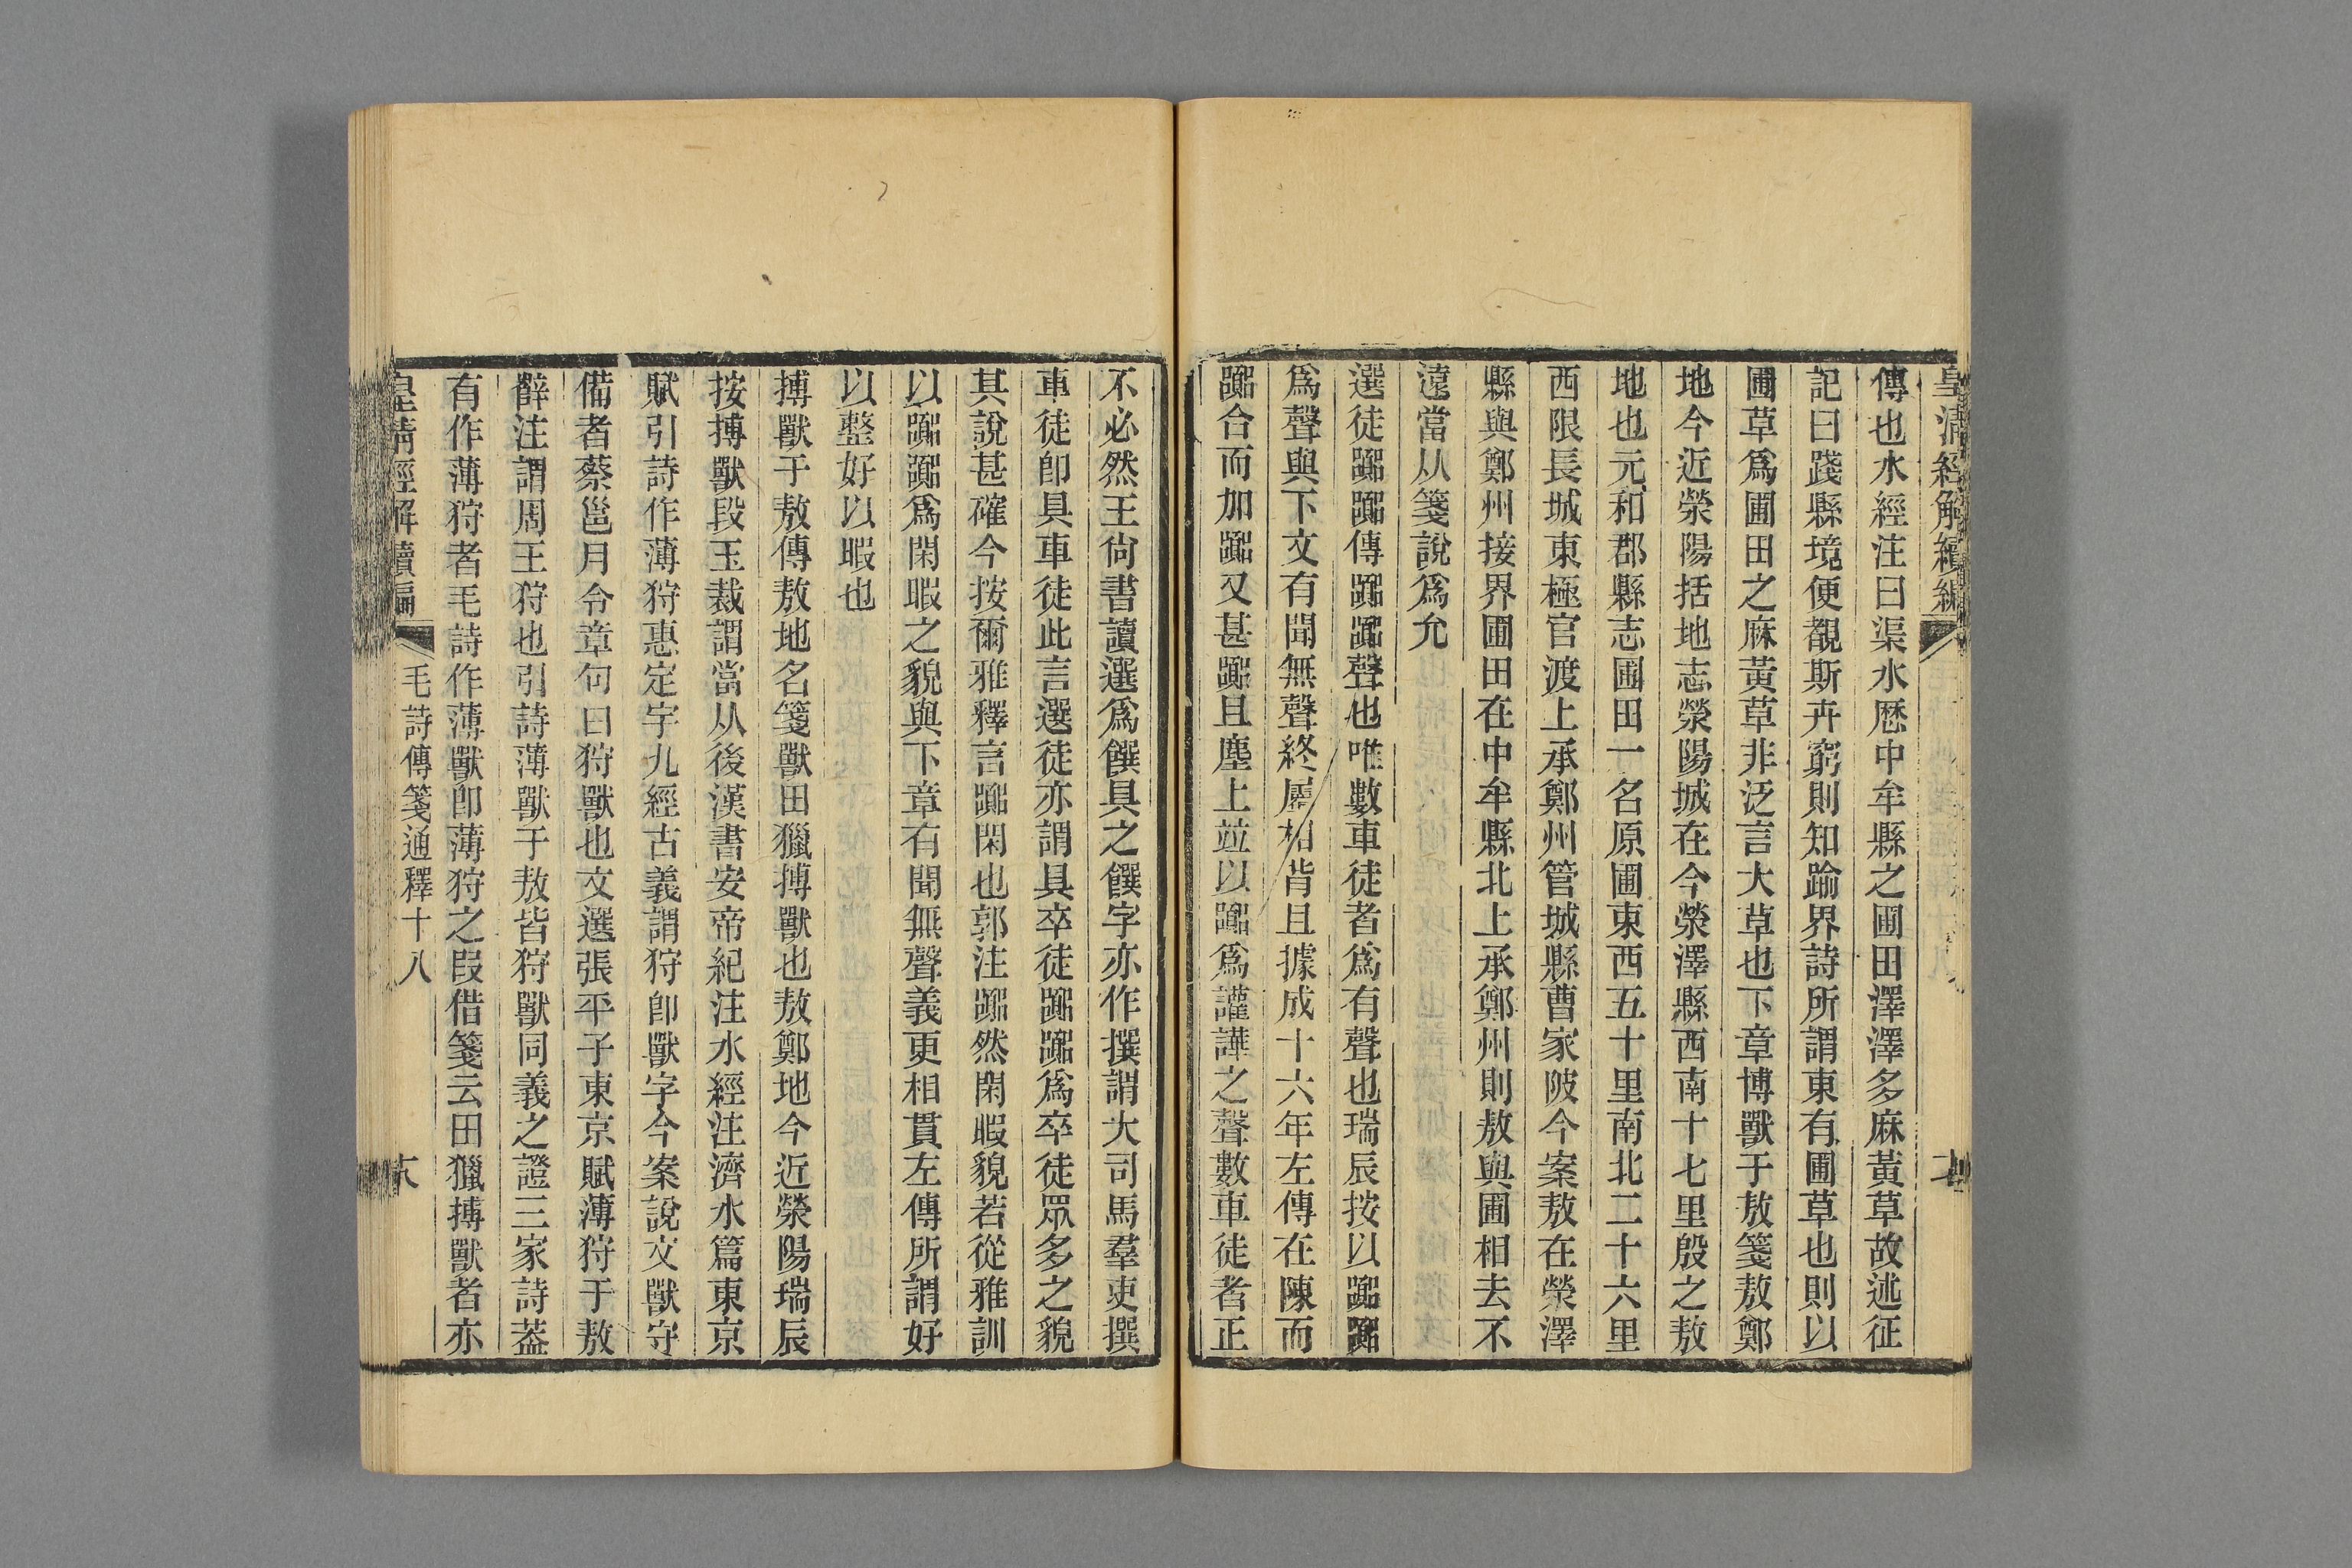 皇清經解續編
傳也水經注曰渠水歷中牟縣之圃田澤澤多麻黃草故述征
記曰踐縣境便覩斯卉窮則知踰界詩所謂東有圃草也則以
圃草爲圃田之麻黃草非泛言大草也下章博獸于敖箋敖鄭
地今近滎陽括地志滎陽城在今滎澤縣西南十七里殷之敖
地也元和郡縣志圃田一名原圃東西五十里南北二十六里
西限長城東極官渡上承鄭州管城縣曹家陂今案敖在滎澤
縣與鄭州接界圃田在中牟縣北上承鄭州則敖與圃相去不
遠當从箋說爲允
選徒嚻嚻傳嚻嚻聲也唯數車徒者爲有聲也瑞辰按以嚻嚻
爲聲與下文有聞無聲終屬相背且據成十六年左傳在陳而
嚻合而加嚻又甚嚻且塵上並以嚻爲讙譁之聲數車徒者正
不必然王尙書讀選爲饌具之饌字亦作撰謂大司馬羣吏撰
車徒卽具車徒此言選徒亦謂具卒徒嚻嚻爲卒徒眾多之貌
其說甚確今按爾雅釋言嚻閑也郭注嚻然閑暇貌若從雅訓
以嚻嚻爲閑暇之貌與下章有聞無聲義更相貫左傳所謂好
以整好以暇也
搏獸于敖傳敖地名箋獸田獵搏獸也敖鄭地今近滎陽瑞辰
按搏獸段玉裁謂當从後漢書安帝紀注水經注濟水篇東京
賦引詩作薄狩惠定宇九經古義謂狩卽獸字今案說文獸守
備者蔡邕月令章句曰狩獸也文選張平子東京賦薄狩于敖
薛注謂周王狩也引詩薄獸于敖皆狩獸同義之證三家詩葢
有作薄狩者毛詩作薄獸卽薄狩之叚借箋云田獵搏獸者亦
皇清經解續編　毛詩傳箋通釋十八